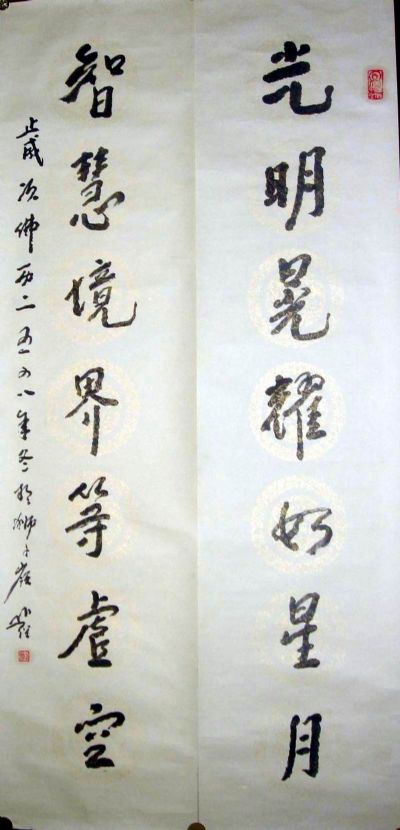 光明晃耀如星月
智慧境界等虚空
歲次佛历二五五八年冬於狮子崖